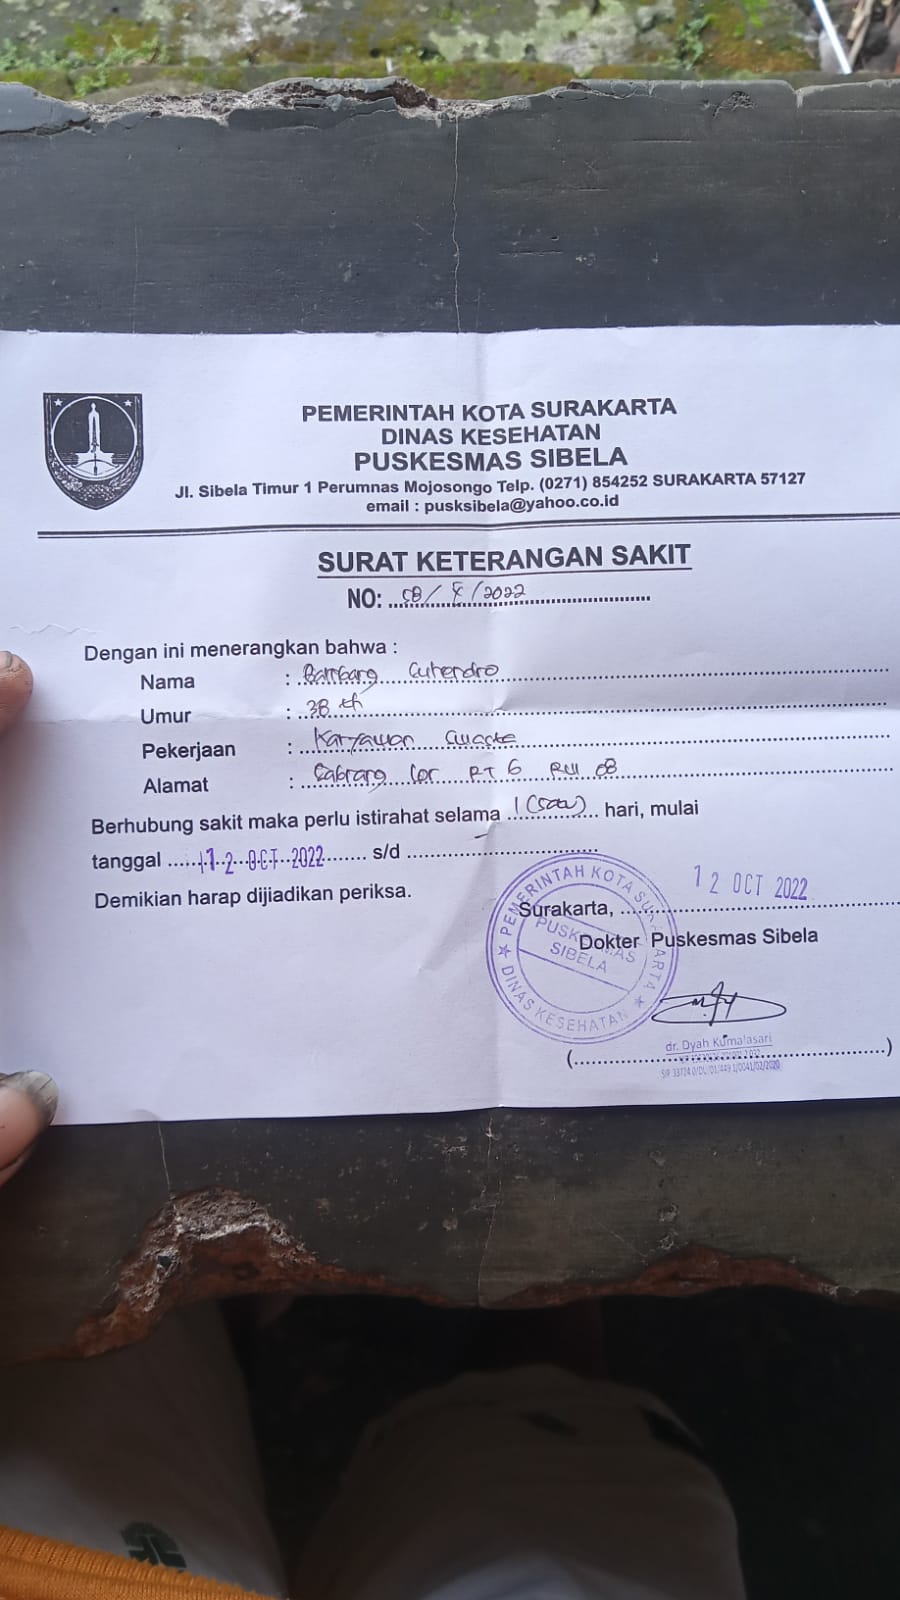 PEMERINTAH KOTA SURAKARTA
DINAS KESEHATAN
PUSKESMAS SIBELA
Jl. Sibela Timur 1 Perumnas Mojosongo Telp. (0271) 854252 SURAKARTA 57127
email : pusksibela@yahoo.co.id
SURAT KETERANGAN SAKIT
NO: 58/ X /2022
Dengan ini menerangkan bahwa :
Nama : Bambang Suhendro
Umur : 38 th
Pekerjaan : Karyawan Swasta
Alamat : Sabrang Lor RT 6 RW 08
Berhubung sakit maka perlu istirahat selama 1 (satu) hari, mulai
tanggal 12 OCT 2022 s/d
Demikian harap dijiadikan periksa.
Surakarta, 12 OCT 2022
Dokter Puskesmas Sibela
PEMERINTAH KOTA SURAKARTA
PUSKESMAS
SIBELA
DINAS KESEHATAN
dr. Dyah Kumalasari
(....................)